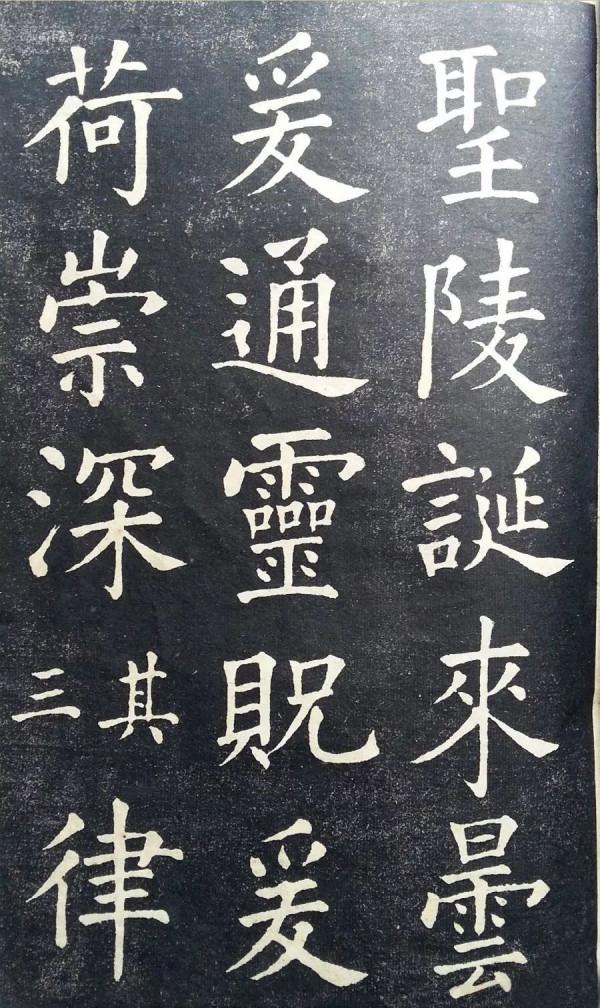 聖陵誕來曇
爰通靈貺爰
荷崇深其三律